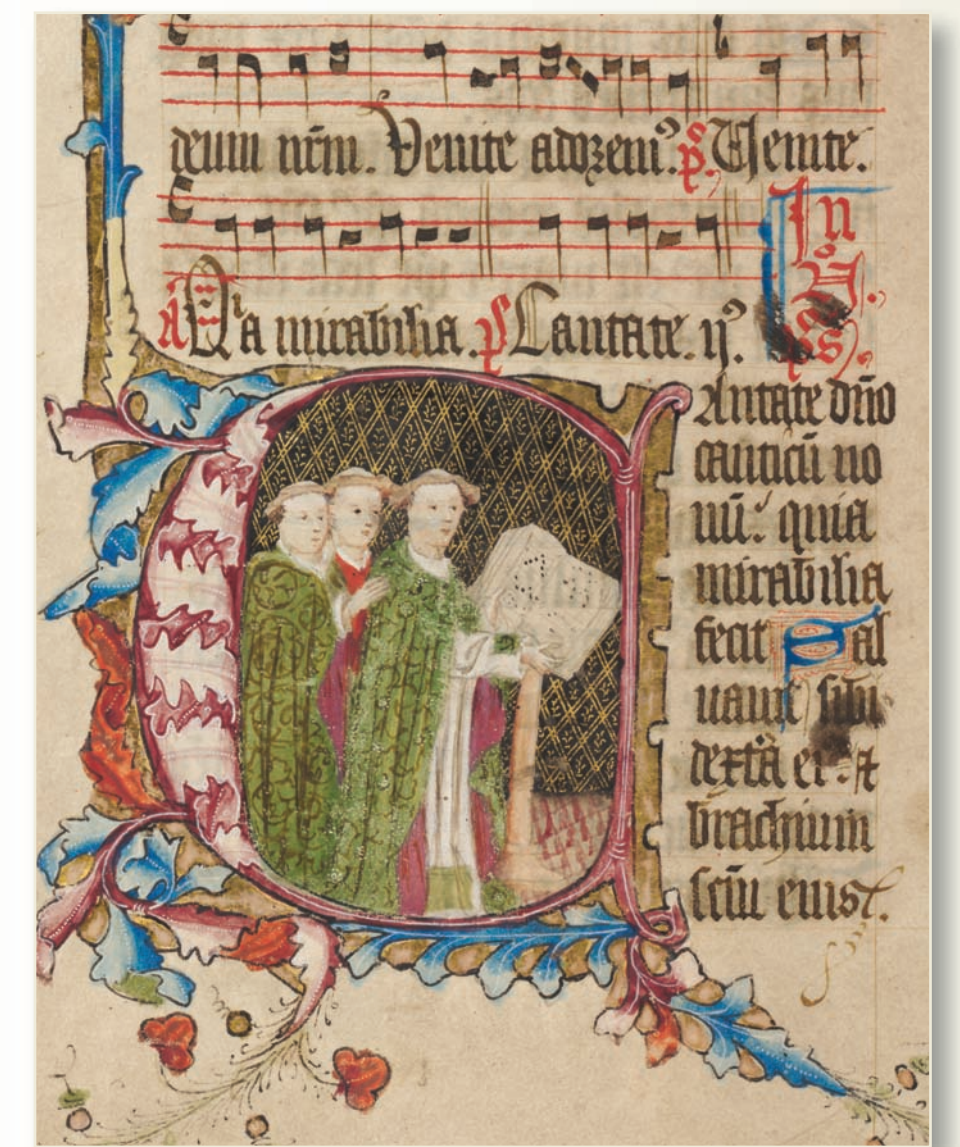 deum nr̄m. Venite adorem⁹. p̄s. Venite.
A Q'a mirabilia. ps Cantate. ij.
In
ps
Antate dn̄o
canticū no
uū: quia
mirabilia
fecit Sal
uauit sibi
dext'a ei⁹ : ⁊
brachium
sc̄ū eius.